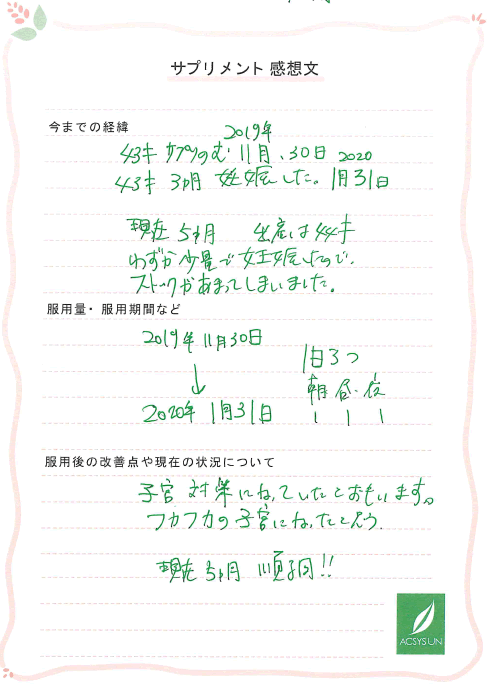 サプリメント 感想文
今までの経緯
2019年
43才 サプリのむ 11月、30日 2020
43才 3ヵ月 妊娠した。1月31日
現在 5ヶ月 出産は44才
わずか少量で妊娠したので、
ストックがあまってしまいました。
服用量・服用期間など
2019年 11月30日
1日3つ
↓
朝 昼・夜
2020年 1月31日 1 1 1
服用後の改善点や現在の状況について
子宮 対策になっていたとおもいます。
フカフカの子宮になったとおもう。
現在 5ヶ月 順調!!
ACSYSUN